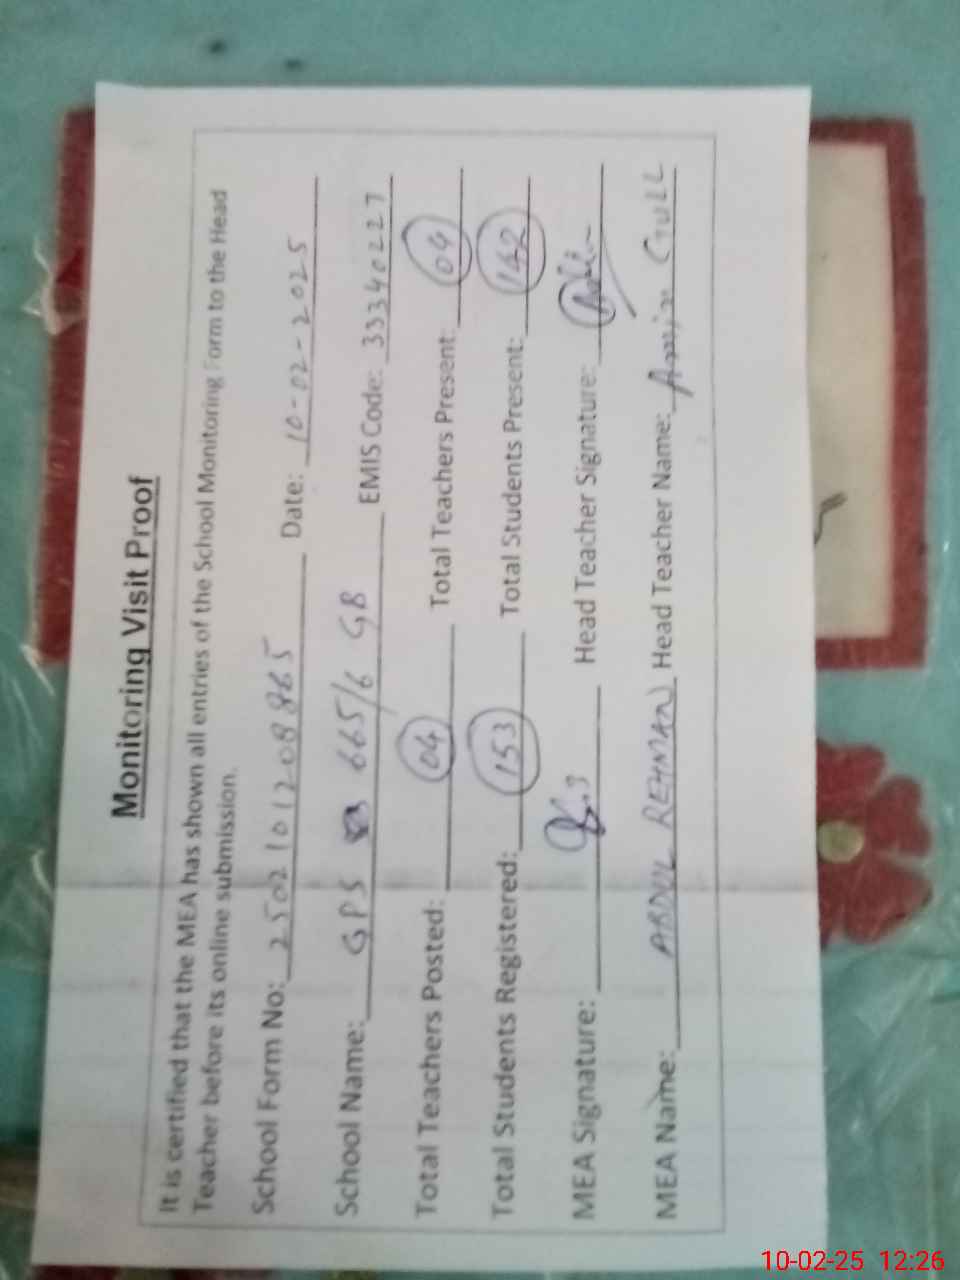 Monitoring Visit Proof
It is certified that the MEA has shown all entries of the School Monitoring Form to the Head
Teacher before its online submission.
School Form No: 2502101208865 Date: 10-02-2025
School Name: GPS 665/6 GB EMIS Code: 33340227
Total Teachers Posted: 04 Total Teachers Present: 04
Total Students Registered: 153 Total Students Present: 142
MEA Signature: Head Teacher Signature:
MEA Name: ABDUL REHMAN Head Teacher Name: Amir Gull
10-02-25 12:26